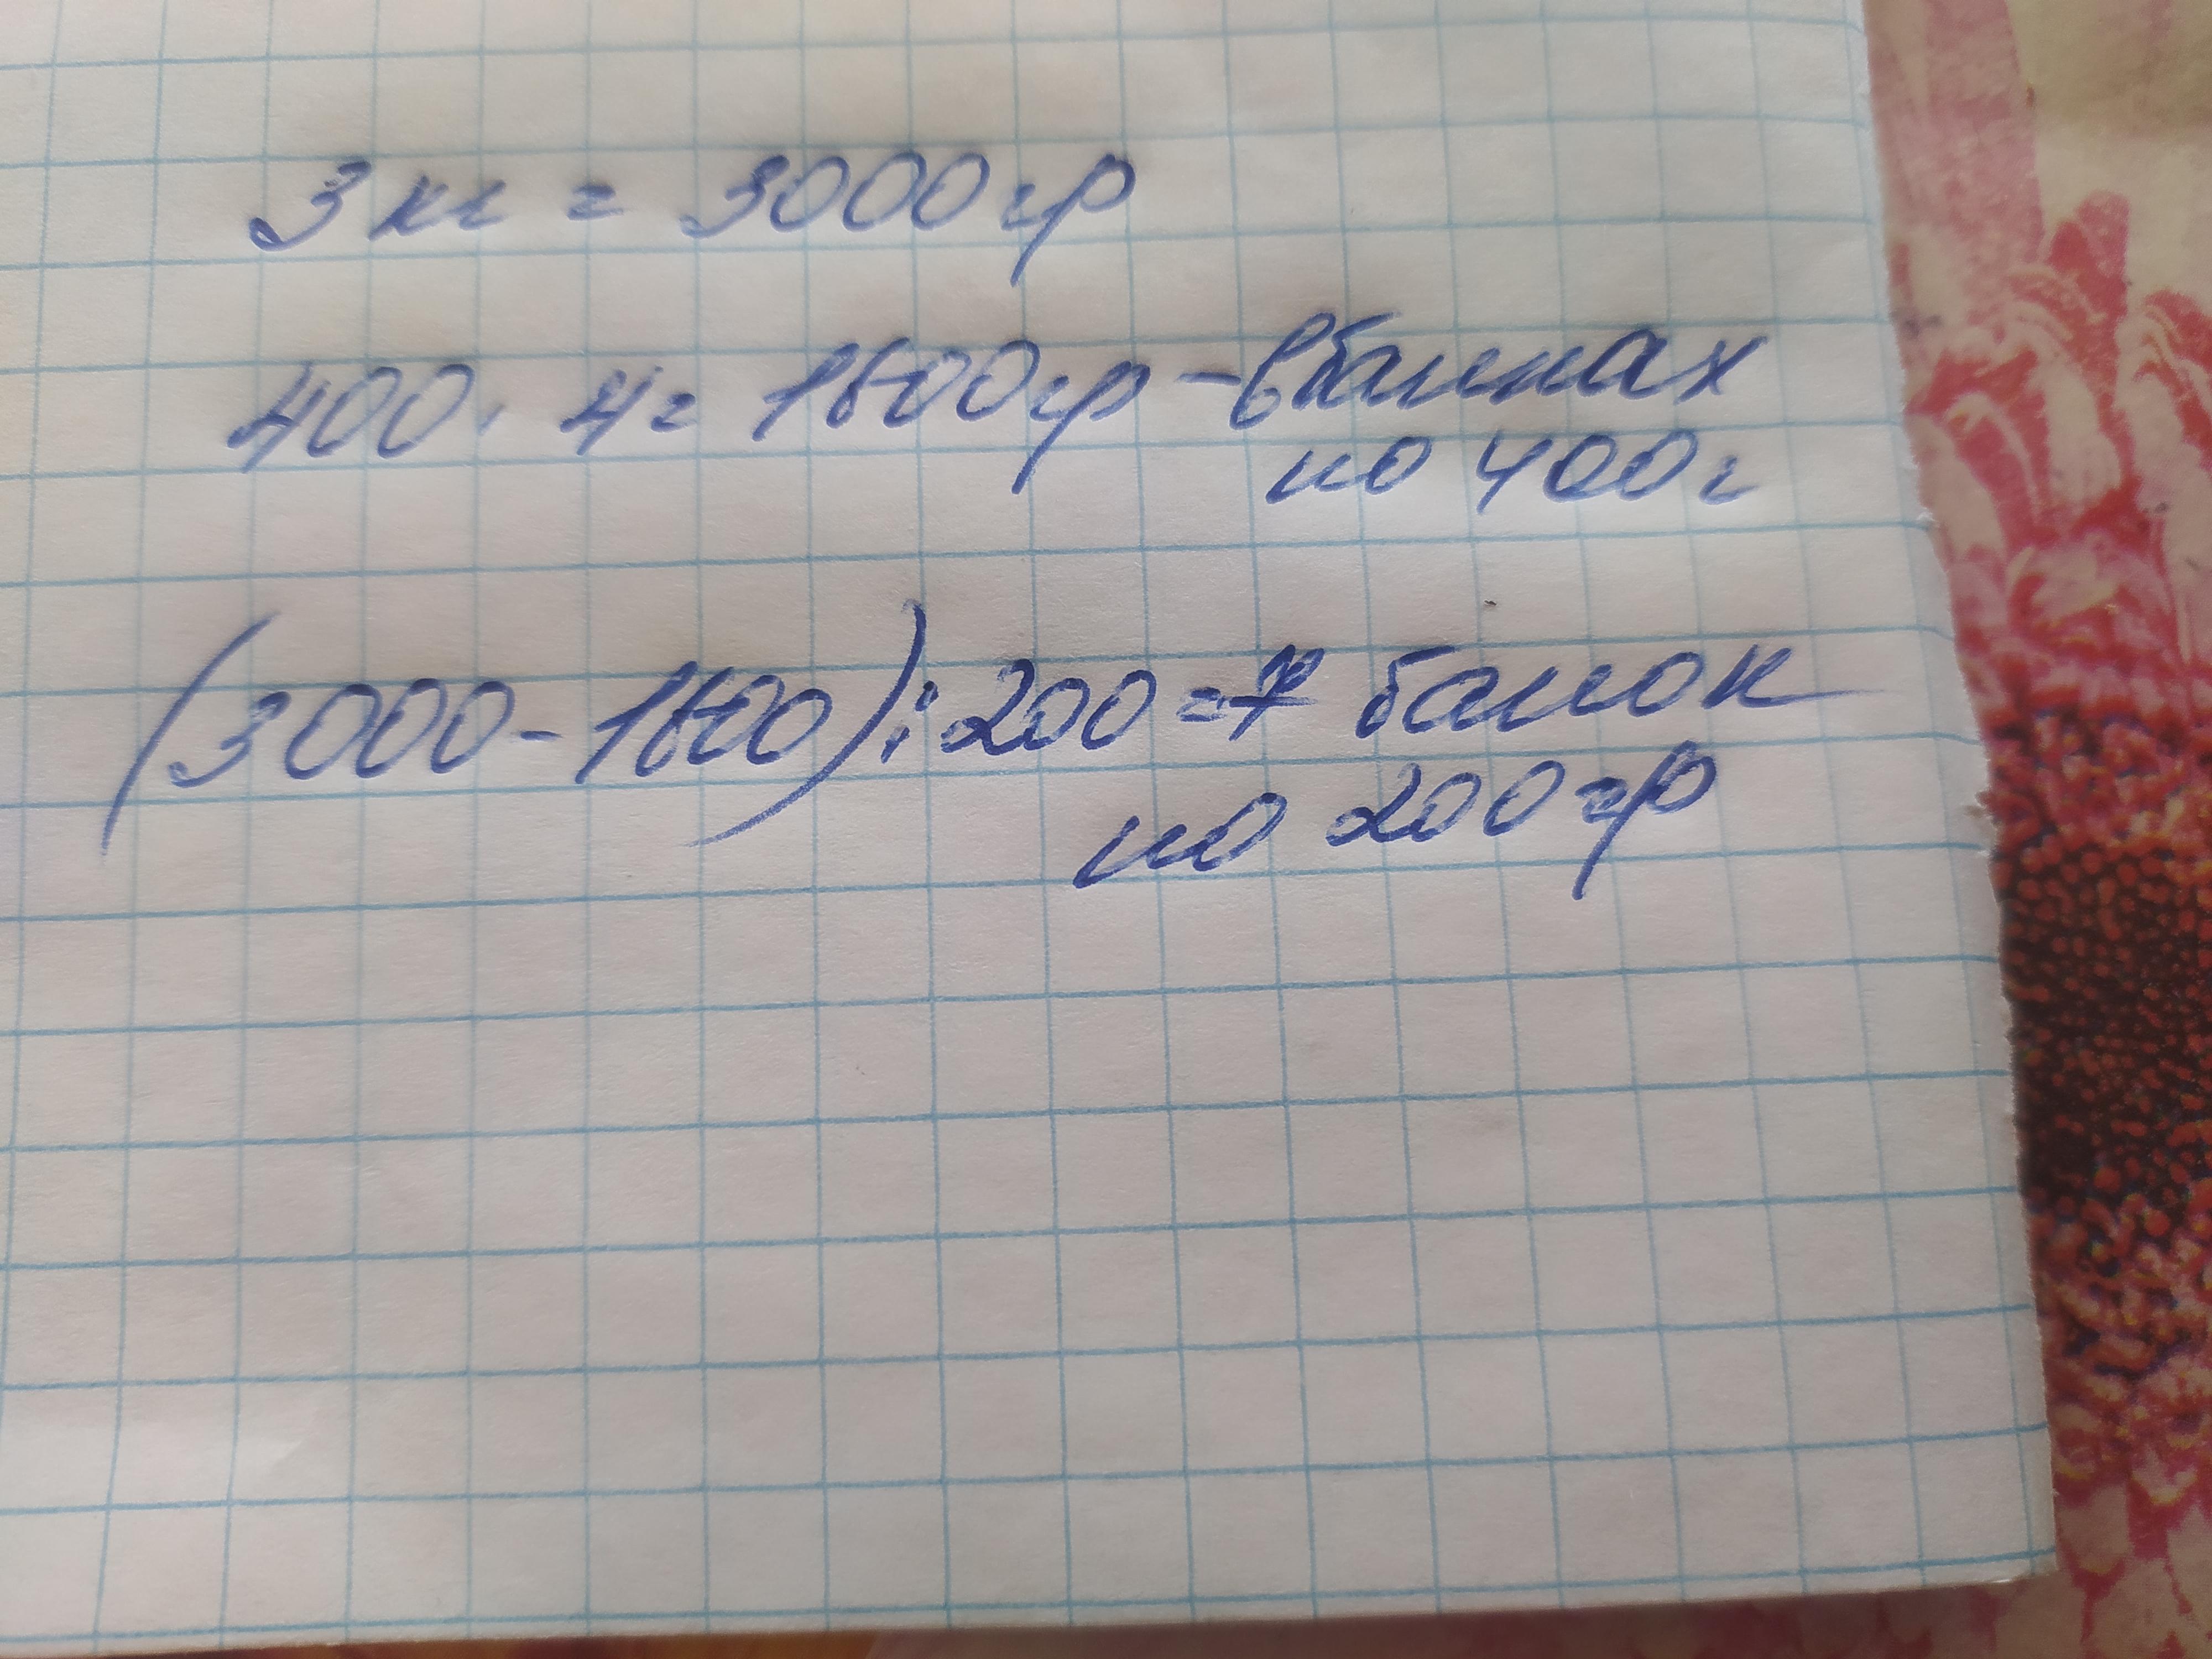 3 кг = 3000 гр
400 · 4 = 1600 гр - в банках
по 400 г
(3000 - 1600) : 200 = 7 банок
по 200 гр